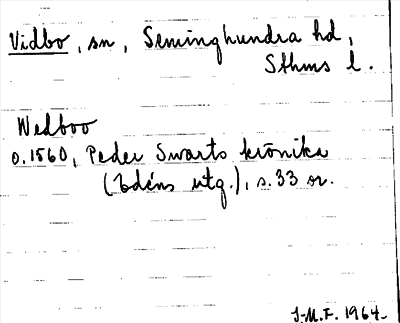 Vidbo, sn, Seminghundra hd,
Sthms l.
Wedboo
o.1560, Peder Swarts krönika
(Edéns utg.), s. 33 or.
J-M.F. 1964